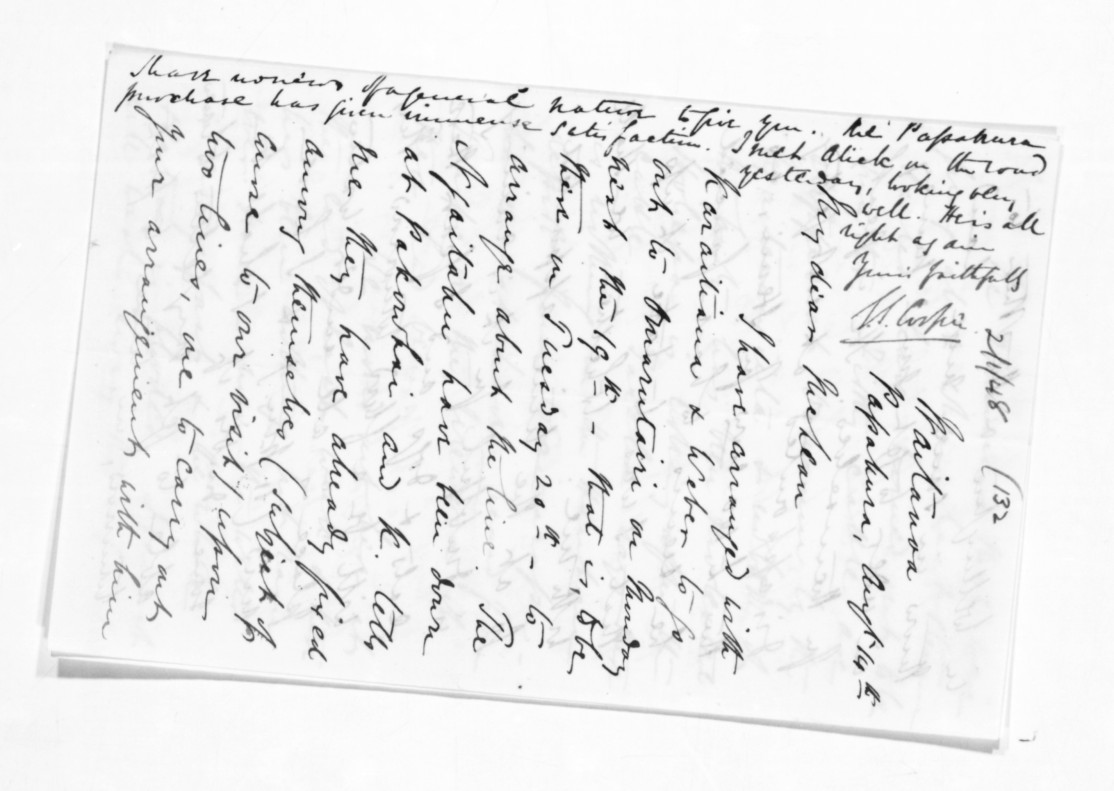 (132
2/1/48
Waitanoa
Papakura, Augt. 14th
My dear McLean
I have arranged with
Karaitiana & Weber to go
out to on Monday
next the 19th - that is, to be
there on Tuesday 20th - to
arrange about the line. The
Ngaitahu have been down
at Pakowhai and K. tells
me they have already fixed
among themselves (subject of
course to our visit) upon
two lines, one to carry out
your arrangement with him
I have no news of a general nature to give you. The Papakura
purchase has given immense satisfaction. I met Alick on the road
yesterday, looking very
well. He is all
right again
Yours faithfully